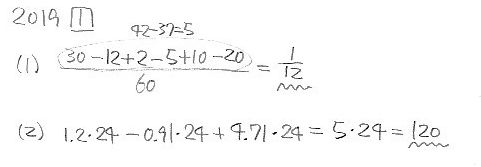 2019 1
42-37=5
(1) 30-12+2-5+10-20/60 = 1/12
(2) 1.2·24-0.91·24+4.71·24=5·24=120